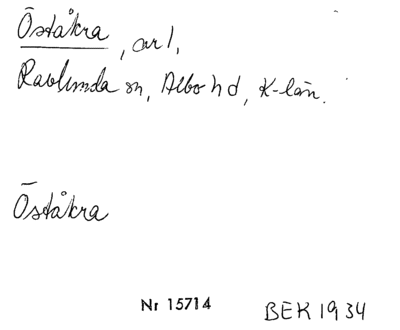 Öståkra, avl.
Ravlunda sn, Albo hd, K-län.
Öståkra
Nr 15714
BEK 1934